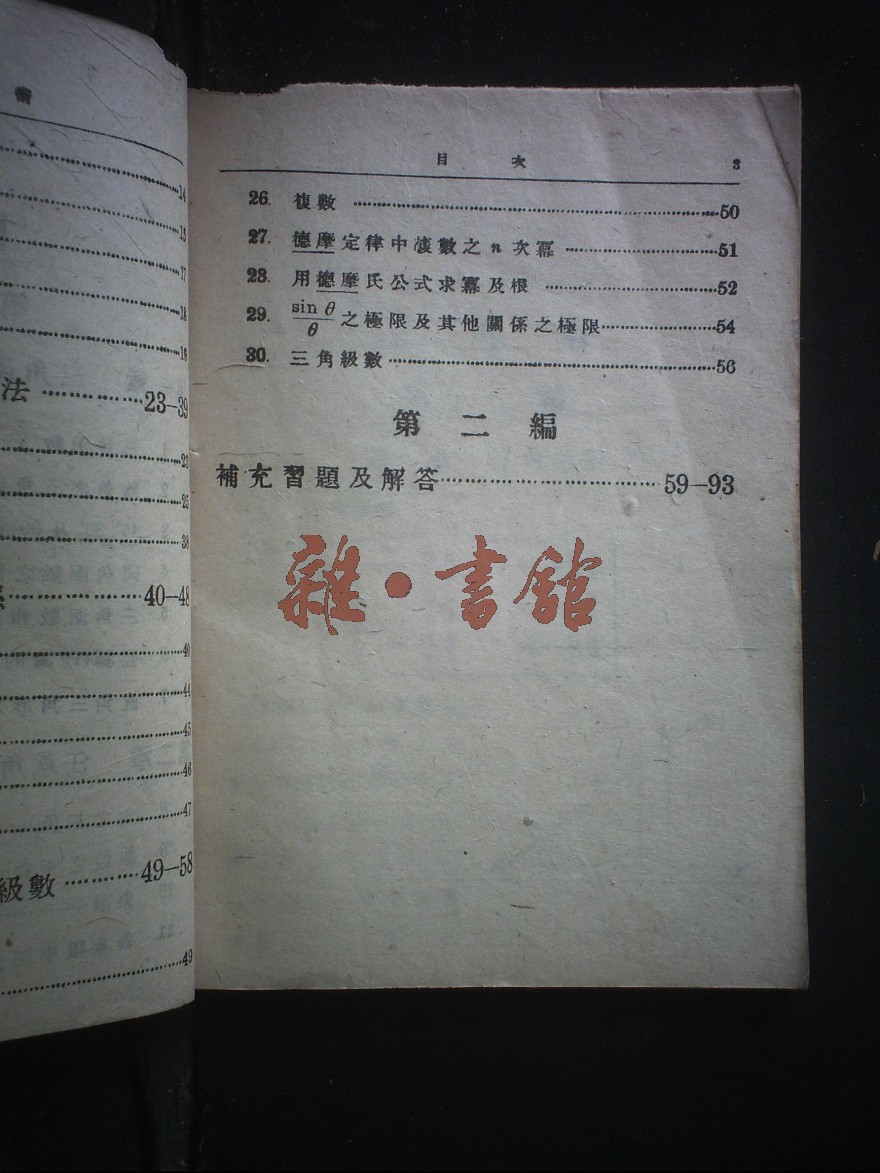 14
15
17
18
19
法 23–39
23
25
38
40–48
40
44
45
46
47
級數 49–58
49
目 次 3
26. 複數 50
27. 德摩定律中複數之 n 次冪 51
28. 用德摩氏公式求冪及根 52
29. sin θ/θ 之極限及其他關係之極限 54
30. 三角級數 56
第二編
補充習題及解答 59–93
雜·書館